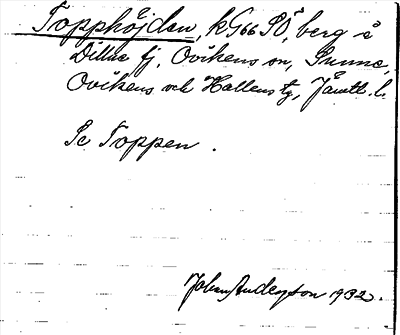 Topphöjden, kG66 SÖ, berg å
Dillne fj, Ovikens sn, Sunne,
Ovikens och Hallens tg, Jämtl. l.
Se Toppen.
Johan Anderson 1932.